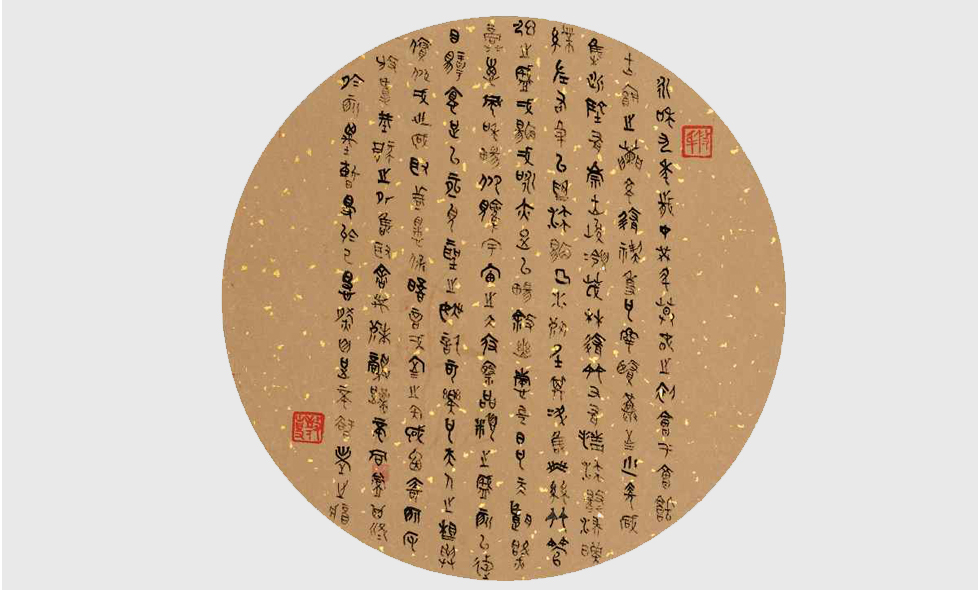 永和九年歲在癸丑暮春之初會于會稽
山陰之蘭亭脩禊事也群賢畢至少長咸
集此地有崇山峻領茂林脩竹又有清流激湍映
帶左右引以為流觴曲水列坐其次雖無絲竹管
弦之盛一觴一詠亦足以暢敘幽情是日也天朗氣
清惠風和暢仰觀宇宙之大俯察品類之盛所以遊
目騁懷足以極視聽之娛信可樂也夫人之相與
俯仰一世或取諸懷抱晤言一室之內或因寄所託
放浪形骸之外雖取舍萬殊靜躁不同當其欣
於所遇暫得於己快然自足不知老之將